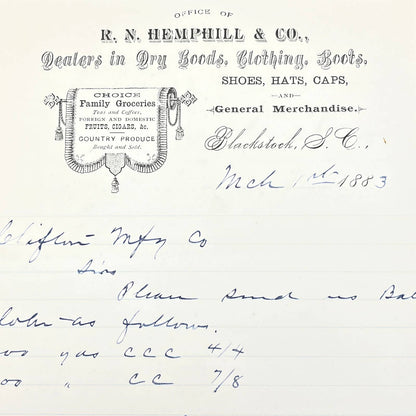 OFFICE OF
R. N. HEMPHILL & CO.,
Dealers in Dry Goods, Clothing, Boots,
SHOES, HATS, CAPS,
AND
General Merchandise.
CHOICE
Family Groceries
Teas and Coffees,
FOREIGN AND DOMESTIC
FRUITS, CIGARS, &c.
COUNTRY PRODUCE
Bought and Sold.
Blackstock, S. C.,
Mch 10th 1883
Clifton Mfg Co
Sirs
Please send us Bal
as follows.
00 yds CCC 4/4
00 " CC 7/8